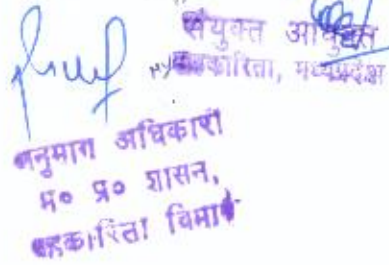 संयुक्त आयुक्त
सहकारिता, मध्यप्रदेश
अनुभाग अधिकारी
म० प्र० शासन,
सहकारिता विभाग